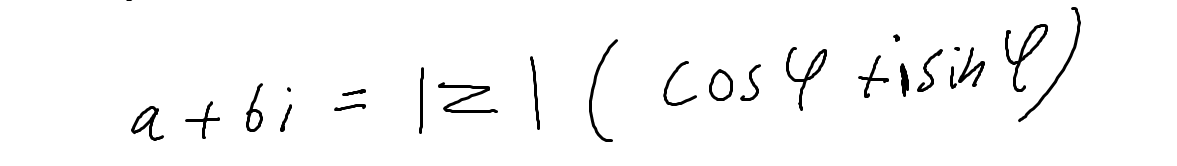 a + bi = |z| ( cos φ + i sin φ)